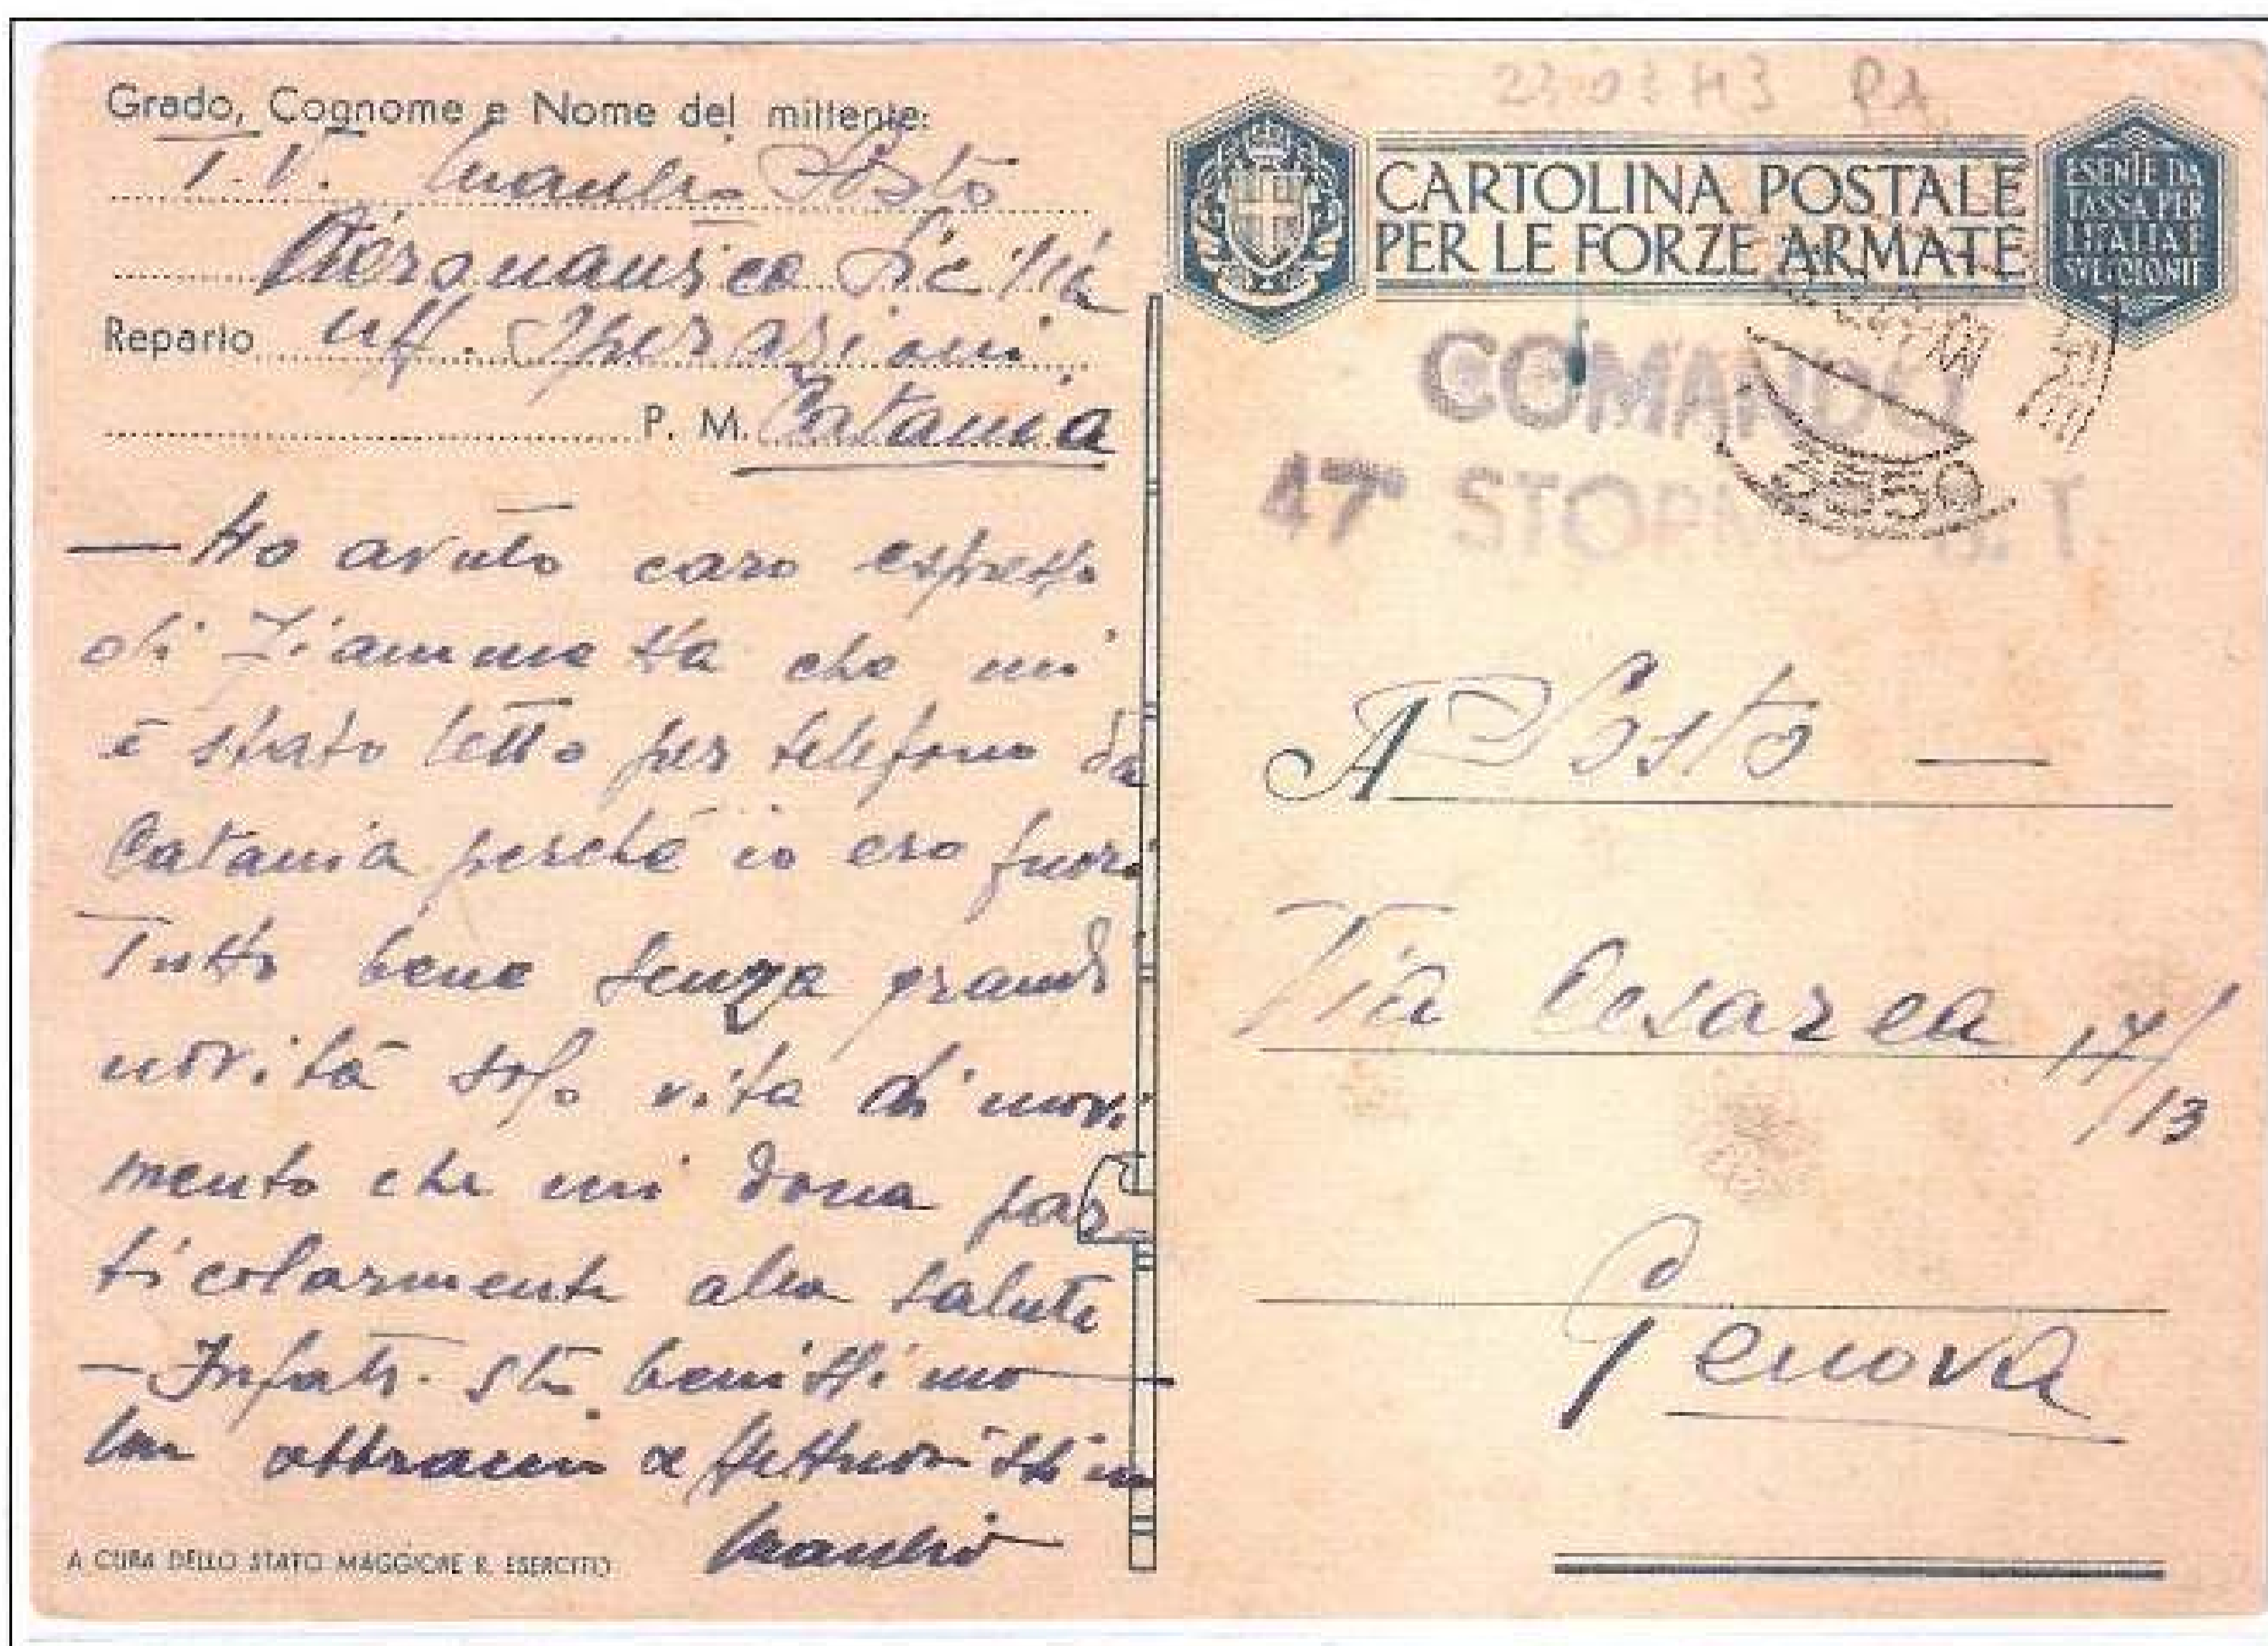 Grado, Cognome e Nome del mittente:
T.V. Manlio Sosto
Aeronautica Sicilia
Reparto Uff. Operazioni
P. M. Catania
— Ho avuto caro espresso
di Fiammetta che mi
è stato letto per telefono da
Catania perché io ero fuori
Tutto bene senza grandi
novità solo vita di movi
mento che mi dona par
ticolarmente alla salute
— Infatti sto benissimo —
abbracci affettuosissimi
Manlio
A CURA DELLO STATO MAGGIORE R. ESERCITO
23 03 43 PA
CARTOLINA POSTALE
PER LE FORZE ARMATE
ESENTE DA
TASSA PER
L'ITALIA E
SUE COLONIE
COMANDO
47° STORMO B. T.
3550
A Sosto —
Via Cesarea 17/13
Genova